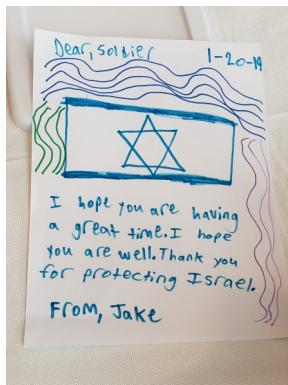 Dear, soldier 1-20-19
I hope you are having
a great time. I hope
you are well. Thank you
for protecting Israel.
From, Jake